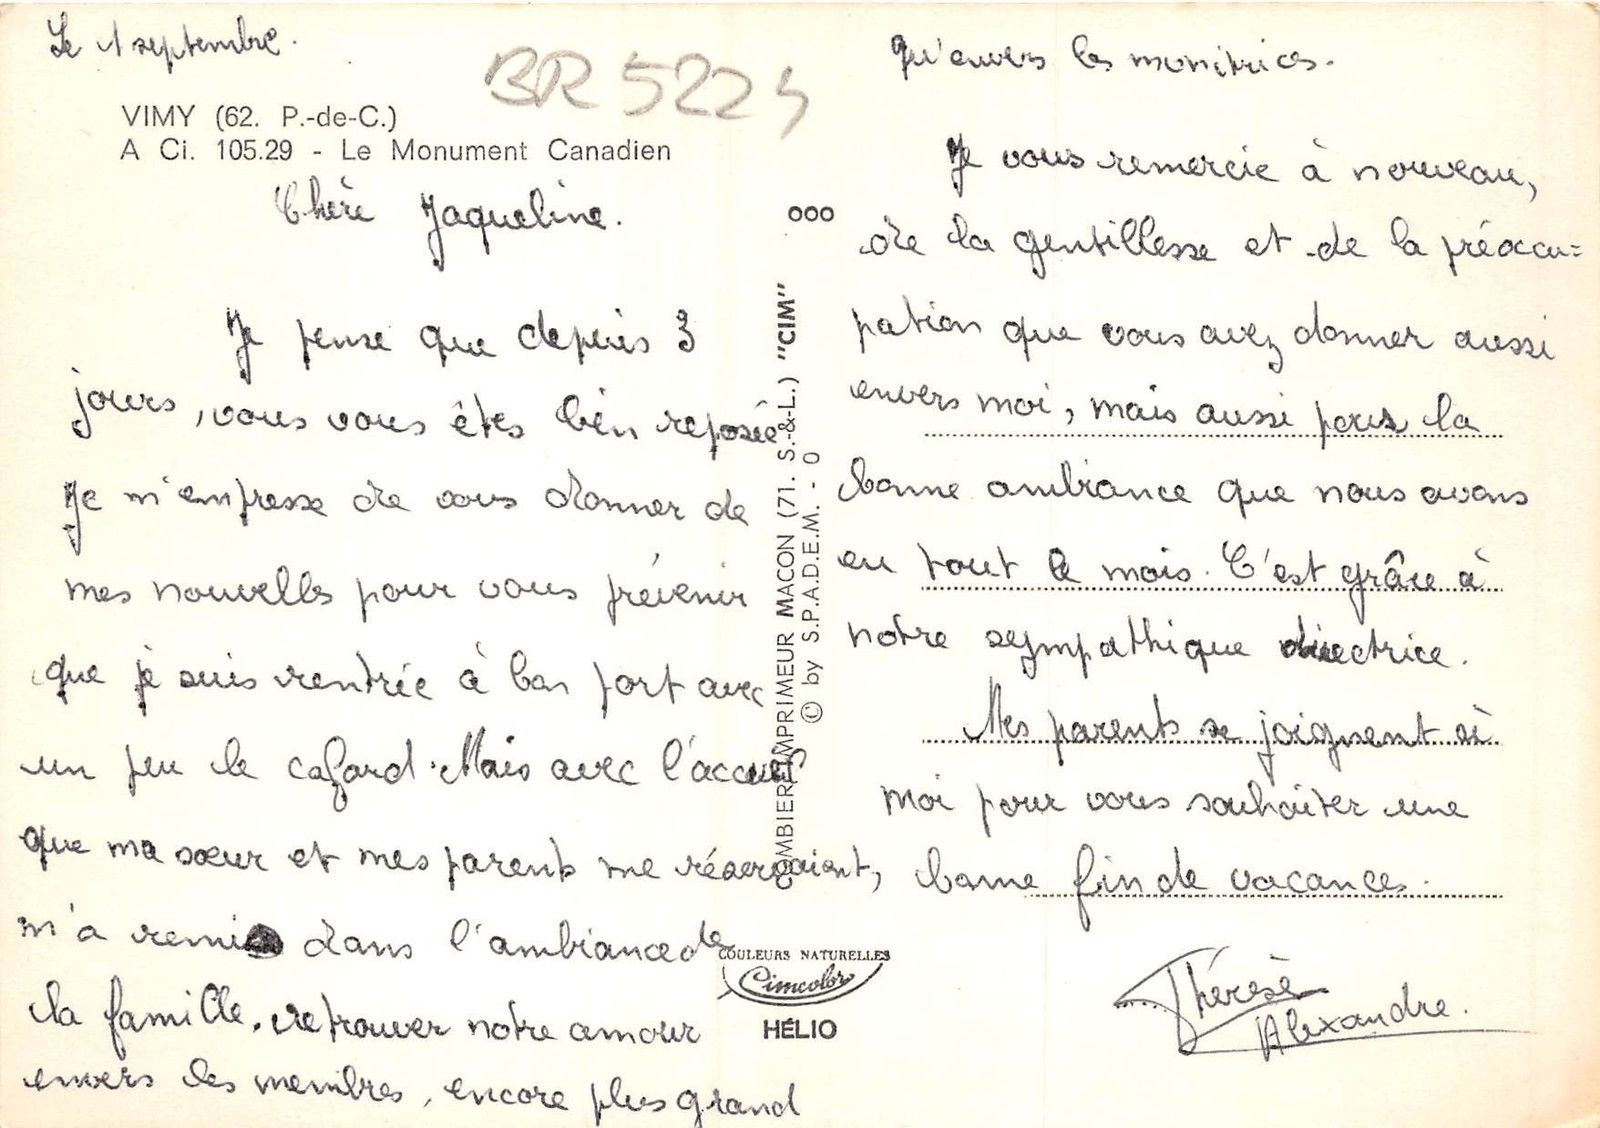 Le 1 septembre.
BR 5224
VIMY (62. P.-de-C.)
A Ci. 105.29 - Le Monument Canadien
Chère Jaqueline.
Je pense que depuis 3
jours, vous vous êtes bien reposée
Je m'empresse de vous donner de
mes nouvelles pour vous prévenir
que je suis rentrée à bon port avec
un peu le cafard. Mais avec l'accueil
que ma sœur et mes parents me réservaient,
m'a remis dans l'ambiance de
la famille. retrouver notre amour
envers les membres, encore plus grand
COMBIER IMPRIMEUR MACON (71. S.-&-L.) "CIM"
© by S.P.A.D.E.M. - 0
000
COULEURS NATURELLES
Cimcolor
HÉLIO
qu'envers les monitrices.
Je vous remercie à nouveau,
de la gentillesse et de la préoccu=
pation que vous avez donner aussi
envers moi, mais aussi pour la
bonne ambiance que nous avons
eu tout le mois. C'est grâce à
notre sympathique directrice.
Mes parents se joignent à
moi pour vous souhaiter une
bonne fin de vacances.
Thérèse
Alexandre.